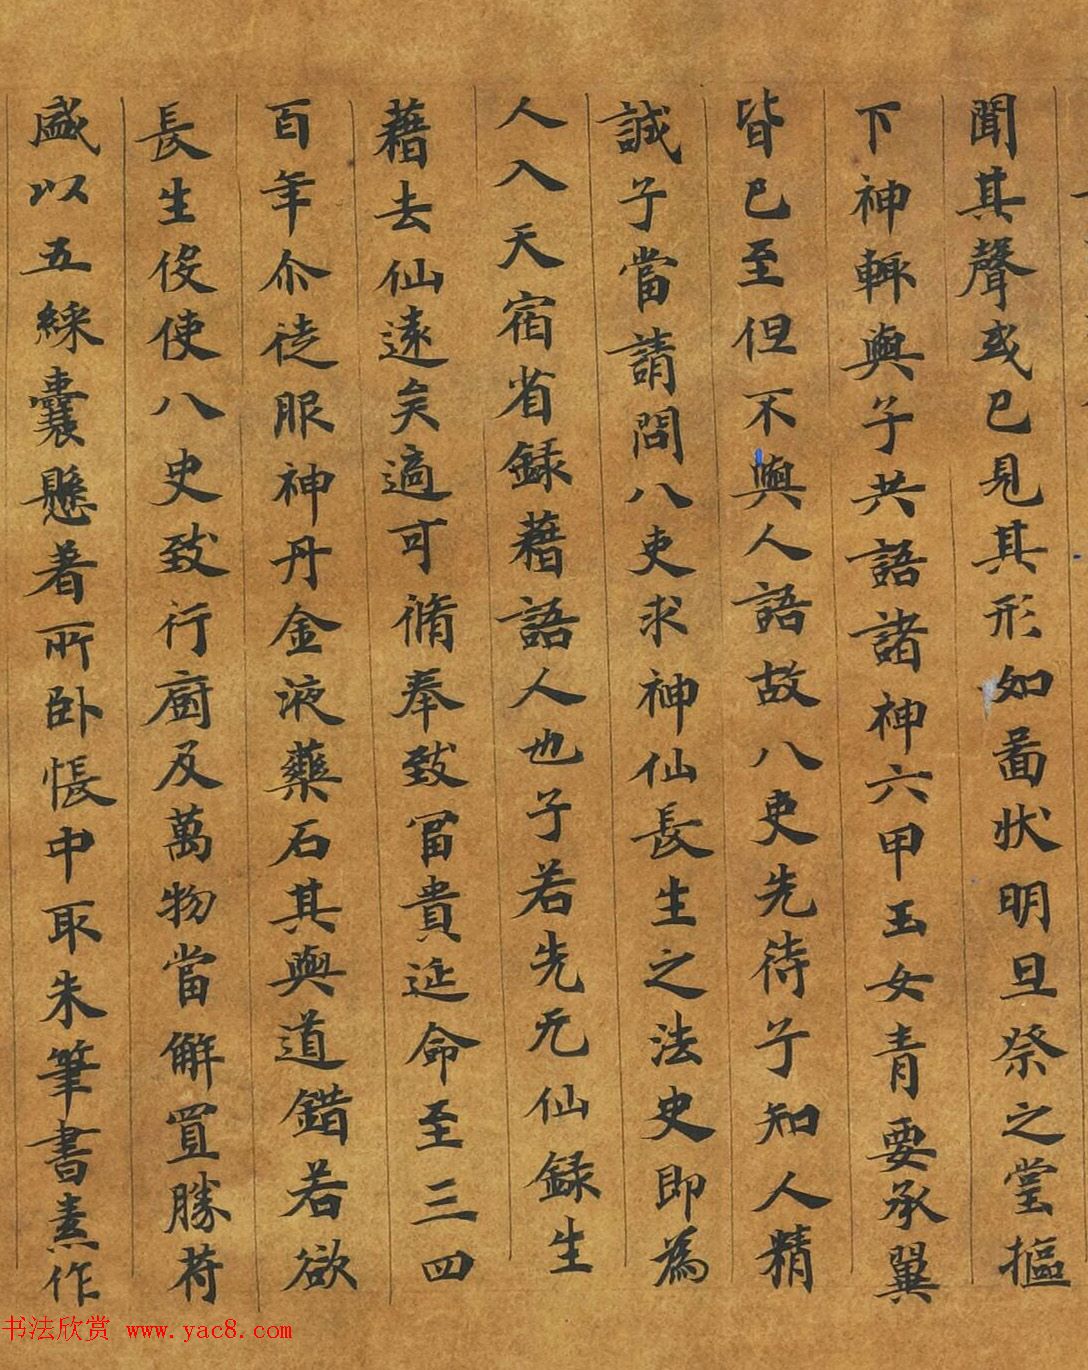 聞其聲或已見其形如啚狀明旦祭之堂摳
下神輙與子共語諸神六甲玉女青要承翼
皆已至但不與人語故八吏先待子知人精
誠子當請問八吏求神仙長生之法史即為
人入天宿省録藉語人也子若先无仙録生
藉去仙遠矣適可脩奉致冨貴延命至三四
百年尒徒服神丹金液藥石其與道錯若欲
長生伇使八史致行廚及萬物當解置勝荷
盛以五綵囊懸著所卧悵中取朱筆書素作
书法欣赏 www.yac8.com